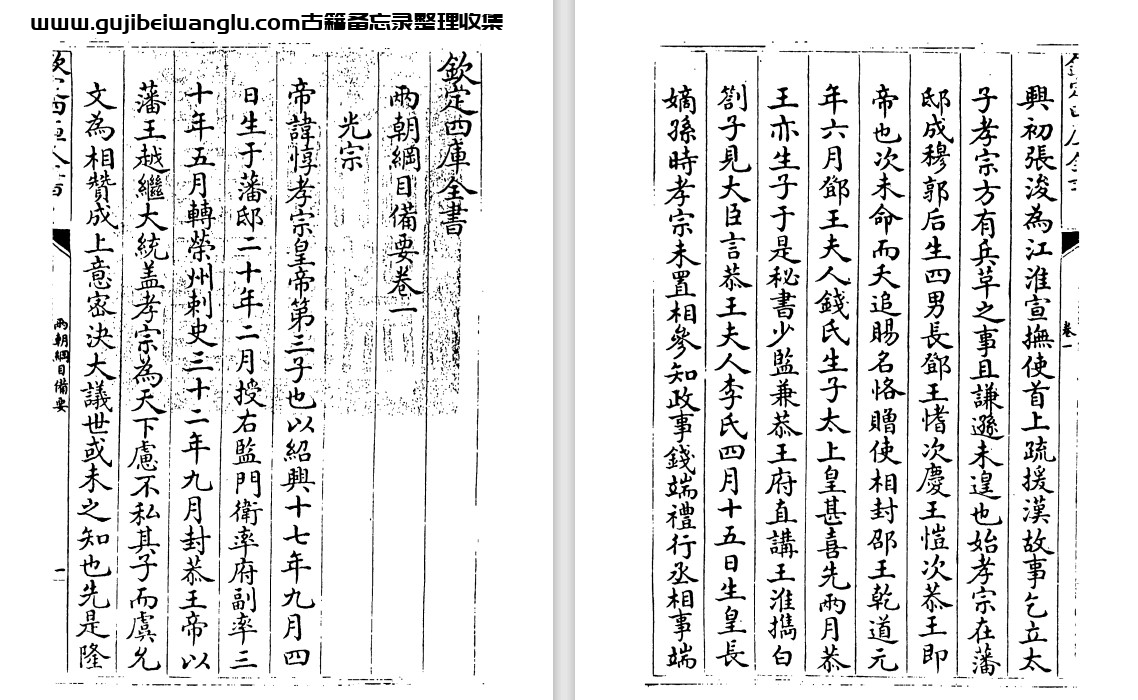 www.gujibeiwanglu.com古籍备忘录整理收集
欽定四庫全書
兩朝綱目備要卷一
光宗
帝諱惇孝宗皇帝第三子也以紹興十七年九月四
日生于藩邸二十年二月授右監門衛率府副率三
十年五月轉榮州刺史三十二年九月封恭王帝以
藩王越繼大統盖孝宗為天下慮不私其子而虞允
文為相贊成上意密決大議世或未之知也先是隆
兩朝綱目備要
一
卷一
興初張浚為江淮宣撫使首上疏援漢故事乞立太
子孝宗方有兵草之事且謙遜未遑也始孝宗在藩
邸成穆郭后生四男長鄧王愭次慶王愷次恭王即
帝也次未命而夭追賜名恪贈使相封邵王乾道元
年六月鄧王夫人錢氏生子太上皇甚喜先兩月恭
王亦生子于是秘書少監兼恭王府直講王淮攜白
劄子見大臣言恭王夫人李氏四月十五日生皇長
嫡孫時孝宗未置相參知政事錢端禮行丞相事端